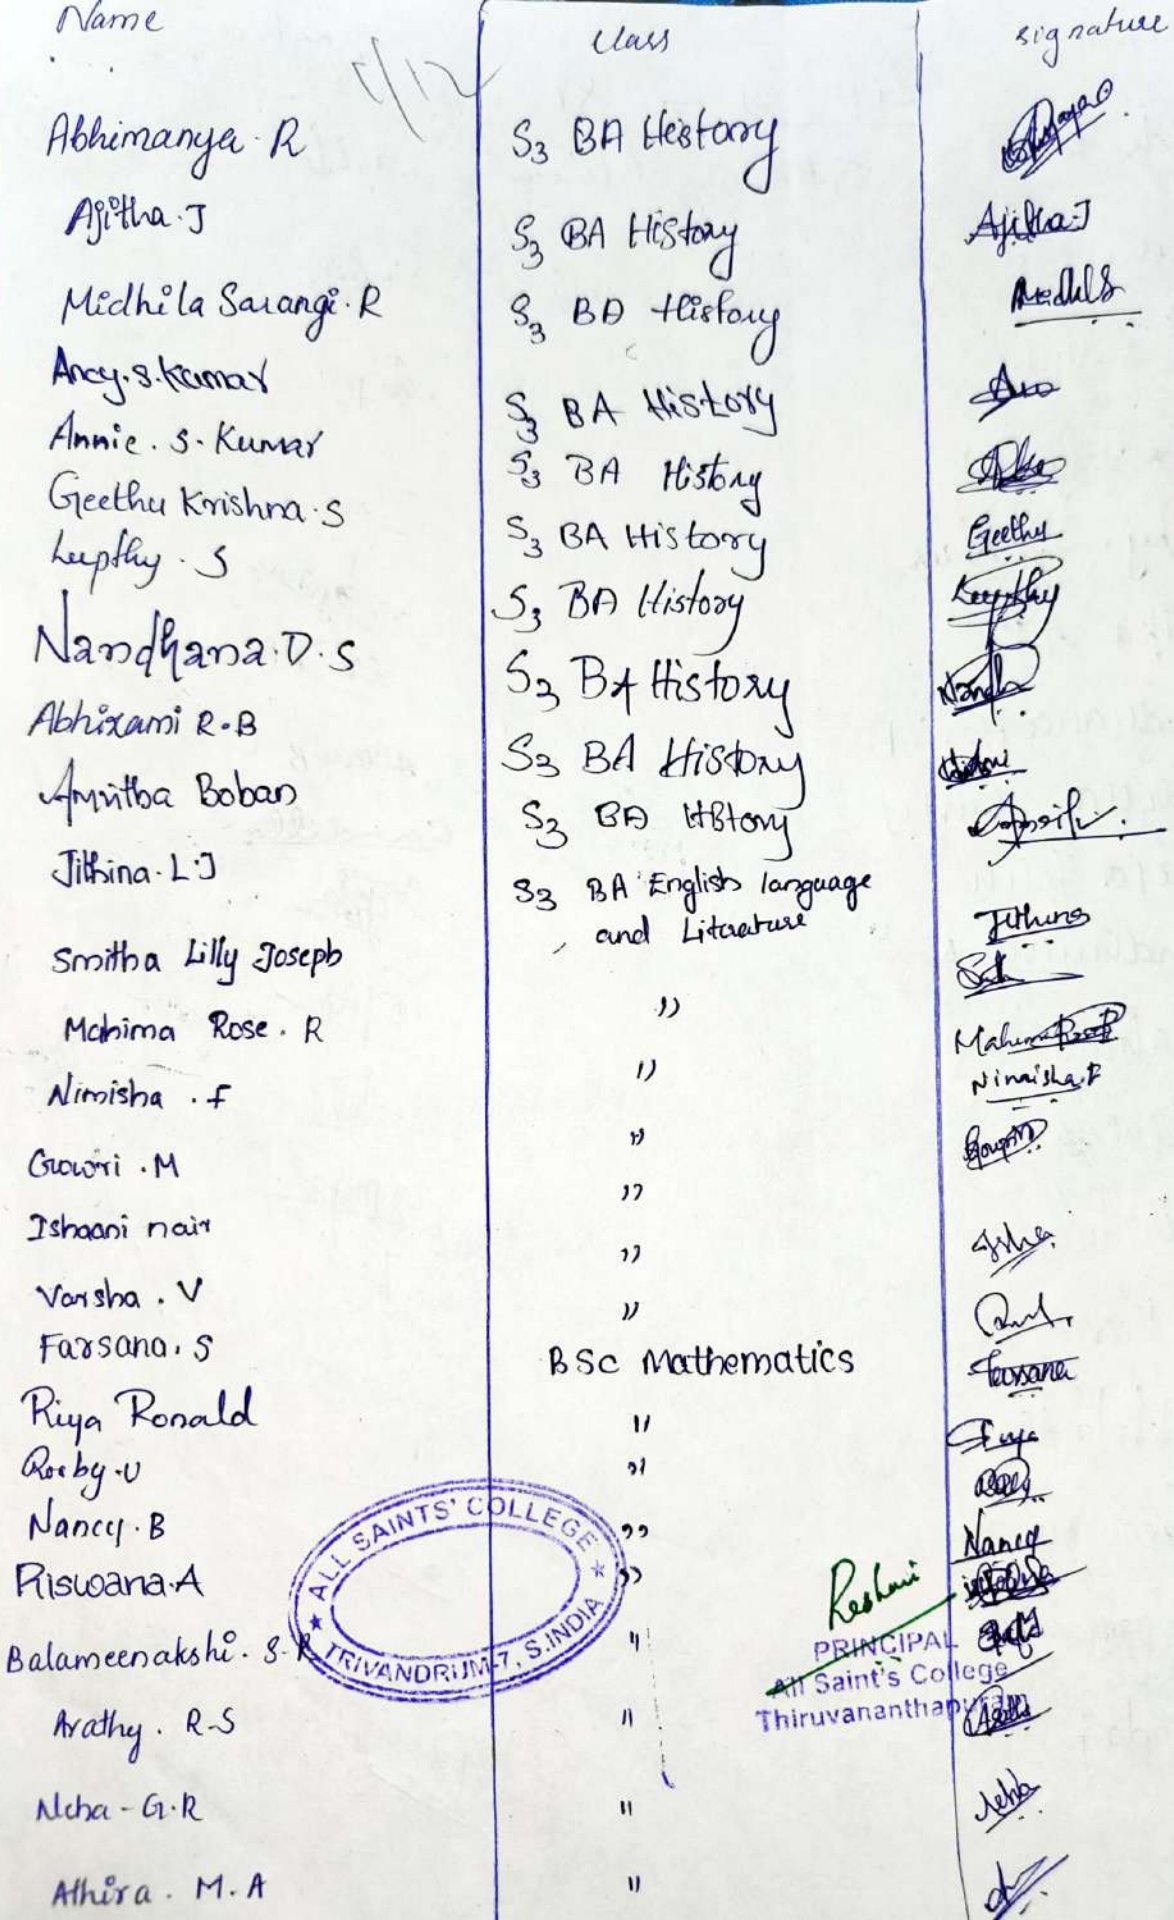 Name Class Signature
5/12
Abhimanya. R S3 BA History
Ajitha. J S3 BA History Ajitha J
Midhila Sarangi. R S3 BA History
Ancy. S. Kumar S3 BA History
Annie. S. Kumar S3 BA History
Geethu Krishna. S S3 BA History Geethu
Lupthy. S S3 BA History Lupthy
Nandhana. D. S S3 BA History Nandh
Abhirami R. B S3 BA History
Amritha Boban S3 BA History
Jithina. L. J S3 BA English language
and Literature Jithina
Smitha Lilly Joseph ,,
Mahima Rose. R ,, Mahima Rose R
Nimisha. F ,, Nimisha. F
Gowri. M ,,
Ishaani nair ,, Isha
Varsha. V ,,
Farsana. S BSc Mathematics Farsana
Riya Ronald " Riya
Roeby. U "
Nancy. B " Nancy
Riswana. A "
ALL SAINTS' COLLEGE
TRIVANDRUM-7, S.INDIA
Balameenakshi. S. R "
Reshmi
PRINCIPAL
All Saint's College
Thiruvananthapuram
Arathy. R-S "
Neha - G. R " Neha
Athira. M. A "